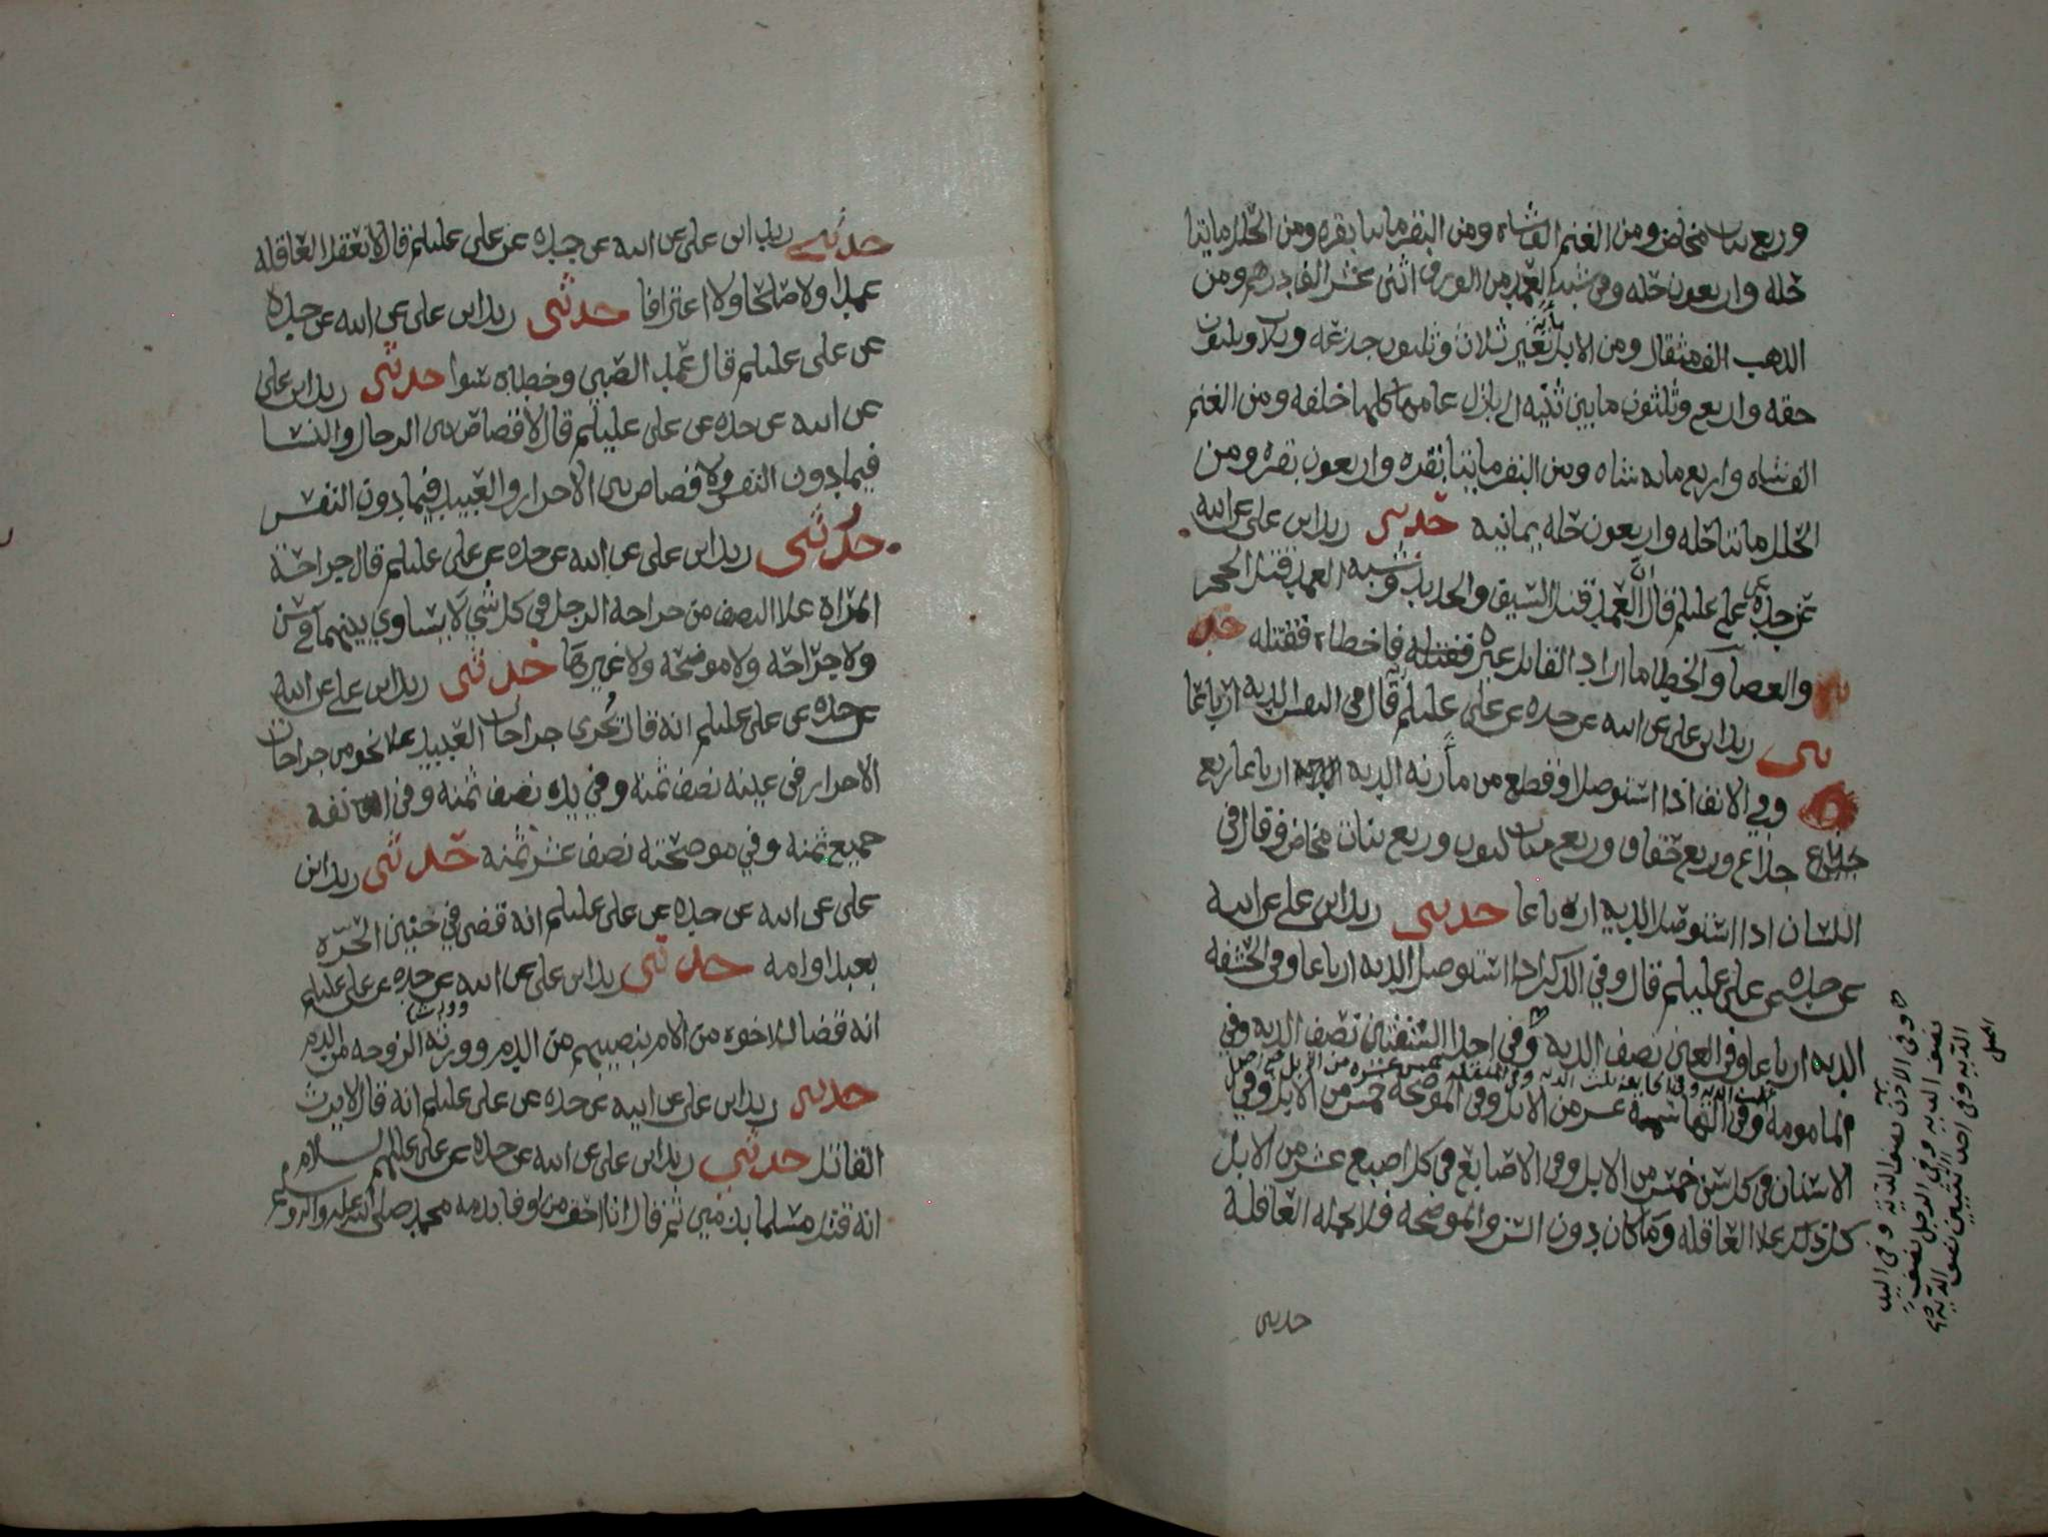 وربع بنات مخاض ومن الغنم الفا شاه ومن البقر مائتا بقره ومن الحلل مائتا
حله واربعون حله وفي شبه العمد من الورق اثنى عشر الف درهم ومن
الذهب الف مثقال ومن الابل ثلاث وثلثون جذعه وثلاث وثلثون
حقه واربع وثلثون مابين ثنيه الى بازل عامها كلها خلفه ومن الغنم
الف شاه واربع مايه شاه ومن البقر مائتا بقره واربعون بقره ومن
الحلل مائتا حله واربعون حله يمانيه حدثني زيد ابن علي عن ابيه
عن جده عن علي عليلم قال العمد قتل السيف والحديد وشبه العمد قتل الحجر
والعصا والخطا ما اراد القاتل غيره فاخطاه فقتله حد
ثني زيد ابن علي عن ابيه عن جده عن علي عليلم قال في النفس الديه ارباعا
وفي الانف اذا استوصل او قطع من مارنه الديه ارباعا ربع
جذاع وربع حقاق وربع بنات لبون وربع بنات مخاض وقال في
اللسان اذا استوصل الديه ارباعا حدثني زيد ابن علي عن ابيه
عن جده عن علي عليلم قال وفي الذكر اذا استوصل الديه ارباعا وفي الحشفه
الديه ارباعا وفي العين نصف الديه وفي احدا الشفتين نصف الديه وفي
المامومه ثلث الديه وفي الجايفه ثلث الديه وفي المنقله خمس عشره من الابل
وفي الهاشمه عشر من الابل وفي الموضحه خمس من الابل وفي
الاسنان في كل سن خمس من الابل وفي الاصابع في كل اصبع عشر من الابل
كل ذلك علا العاقله وما كان دون السن والموضحه فلا تحمله العاقلة
حدثني
وفي الاذن نصف الديه وفي اليد
نصف الديه وفي الرجل نصف
الديه وفي احد الانثيين نصف الديه
حدثني زيد ابن علي عن ابيه عن جده عن علي عليلم قال لا تعقل العاقله
عمدا ولا صلحا ولا اعترافا حدثني زيد ابن علي عن ابيه عن جده
عن علي عليلم قال عمد الصبي وخطاه سوا حدثني زيد ابن علي
عن ابيه عن جده عن علي عليلم قال لا قصاص بين الرجال والنسا
فيما دون النفس ولا قصاص بين الاحرار والعبيد فيما دون النفس
حدثني زيد ابن علي عن ابيه عن جده عن علي عليلم قال جراحة
المراه علا النصف من جراحة الرجل في كل شي لا يساوي بينهما في سن
ولا جراحه ولا موضحه ولا غيرها حدثني زيد ابن علي عن ابيه
عن جده عن علي عليلم انه قال تجرى جراحات العبيد علا نحو من جراحات
الاحرار في عينه نصف ثمنه وفي يده نصف ثمنه وفي انفه
جميع ثمنه وفي موضحته نصف عشر ثمنه حدثني زيد ابن
علي عن ابيه عن جده عن علي عليلم انه قضى في جنين الحره
بعبد او امه حدثني زيد ابن علي عن ابيه عن جده عن علي عليلم
انه قضا للاخوه من الام بنصيبهم من الدم وورث الزوجه من الدم
حدثني زيد ابن علي عن ابيه عن جده عن علي عليلم انه قال لا يرث
القاتل حدثني زيد ابن علي عن ابيه عن جده عن علي عليهم السلام
انه قتل مسلما بذمي ثم قال انا احق من اوفا بذمه محمد صلى الله عليه واله وسلم